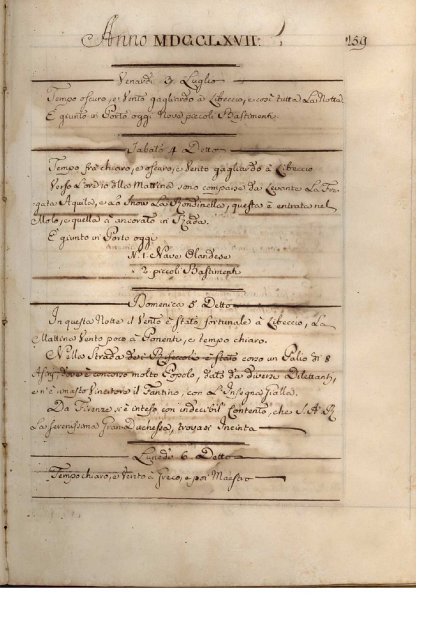 Anno MDCCLXVII. 159
Venerdì 3. Luglio
Tempo oscuro, e Vento gagliardo à Libeccio, e così tutta La Notte.
È giunto in Porto oggi Nove piccoli Bastimenti.
Sabato 4. Detto
Tempo frà chiaro, e oscuro, e Vento gagliardo à Libeccio
Verso della Mattina sono comparse da Levante La Fre-
gata Aquila, e Lo Snow La Rondinella, questa è entrata nel
Molo, e quella à ancorato in Rada.
È giunto in Porto oggi
N. 1. Nave Olandese
2. piccoli Bastimenti
Domenica 5. Detto
In questa Notte il Vento è stato fortunale à Libeccio, La
Mattina Vento poco à Ponente, e tempo chiaro.
Nella Strada è stato corso un Palio di 8
dove è concorso molto Popolo, dato da diversi Dilettanti,
e n'è rimasto Vincitore il Fantino, con L'Insegna Gialla.
Da Firenze s'è inteso con indecibil Contento, che S. A. R.
La Serenissima Gran Duchessa, trovasi Incinta
Lunedì 6. Detto
Tempo chiaro, e Vento à Greco, e poi Maestro